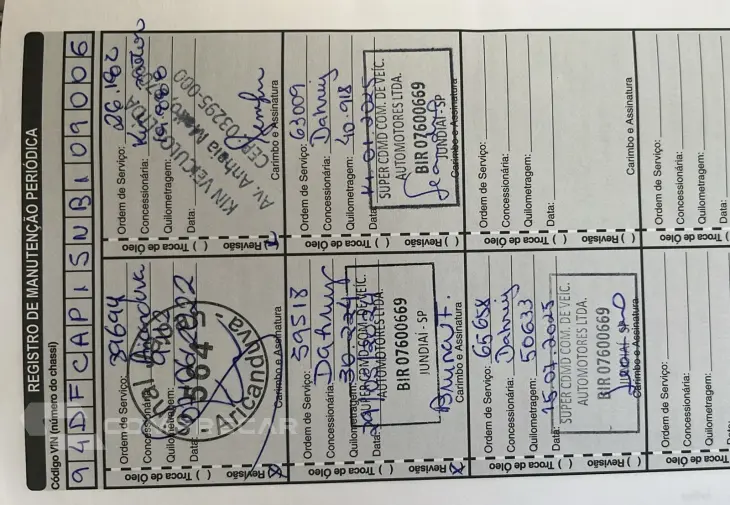 REGISTRO DE MANUTENÇÃO PERIÓDICA
Código VIN (número do chassi)
94DFCAP15NB109006
Ordem de Serviço: 39694
Concessionária:
Quilometragem:
Data:
Carimbo e Assinatura
Aricanduva
Revisão ( ) Troca de Óleo ( )
Ordem de Serviço: 26.182
Concessionária:
Quilometragem: 19.888
Data:
KIN VEICULOS LTDA
CEP 03295-000
Carimbo e Assinatura
Revisão ( ) Troca de Óleo ( )
Ordem de Serviço: 59513
Concessionária: Dahruj
Quilometragem:
Data:
SUPER CDMD COM. DE VEIC.
AUTOMOTORES LTDA.
BIR 07600669
JUNDIAI - SP
Carimbo e Assinatura
Revisão ( ) Troca de Óleo ( )
Ordem de Serviço: 63009
Concessionária: Dahruj
Quilometragem: 40.918
Data: 14.01.2025
SUPER CDMD COM. DE VEIC.
AUTOMOTORES LTDA.
BIR 07600669
JUNDIAI - SP
Carimbo e Assinatura
Revisão ( ) Troca de Óleo ( )
Ordem de Serviço: 65658
Concessionária: Dahruj
Quilometragem: 50633
Data: 15.07.2025
SUPER CDMD COM. DE VEIC.
AUTOMOTORES LTDA.
BIR 07600669
JUNDIAI - SP
Carimbo e Assinatura
Revisão ( ) Troca de Óleo ( )
Ordem de Serviço:
Concessionária:
Quilometragem:
Data:
Carimbo e Assinatura
Revisão ( ) Troca de Óleo ( )
Ordem de Serviço:
Concessionária:
Quilometragem:
Troca de Óleo ( )
Ordem de Serviço:
Concessionária:
Quilometragem:
Data:
Troca de Óleo ( )